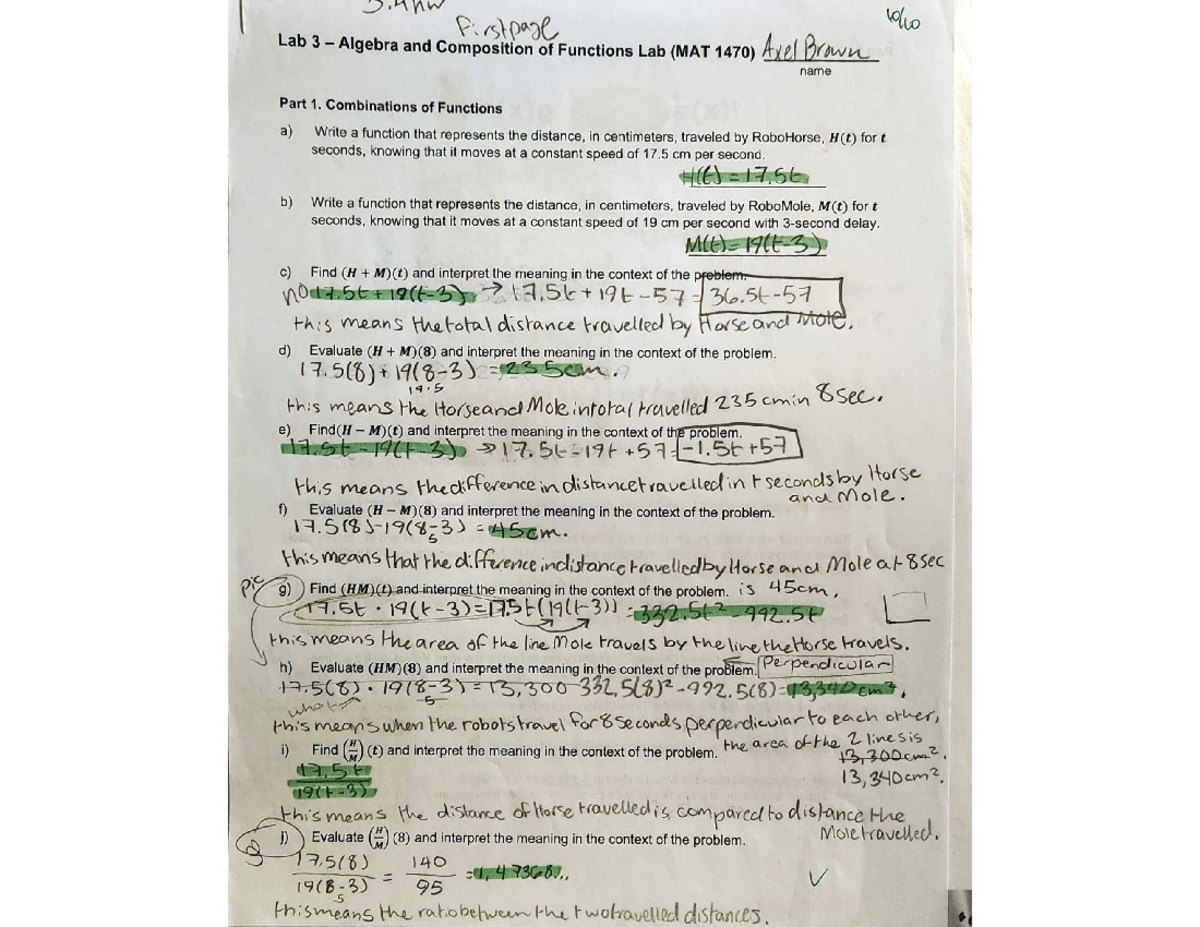 3.4 hw
First page
10/10
Lab 3 – Algebra and Composition of Functions Lab (MAT 1470) Axel Brown
name
Part 1. Combinations of Functions
a) Write a function that represents the distance, in centimeters, traveled by RoboHorse, H(t) for t
seconds, knowing that it moves at a constant speed of 17.5 cm per second.
H(t) = 17.5t
b) Write a function that represents the distance, in centimeters, traveled by RoboMole, M(t) for t
seconds, knowing that it moves at a constant speed of 19 cm per second with 3-second delay.
M(t) = 19(t-3)
c) Find (H + M)(t) and interpret the meaning in the context of the problem.
no 17.5t + 19(t-3) → 17.5t + 19t - 57 = 36.5t-57
this means the total distance travelled by Horse and Mole.
d) Evaluate (H + M)(8) and interpret the meaning in the context of the problem.
17.5(8) + 19(8-3) = 235cm.
19·5
this means the Horse and Mole in total travelled 235 cm in 8 sec.
e) Find(H – M)(t) and interpret the meaning in the context of the problem.
17.5t - 19(t-3) → 17.5t - 19t + 57 = -1.5t + 57
this means the difference in distance travelled in t seconds by Horse
and Mole.
f) Evaluate (H – M)(8) and interpret the meaning in the context of the problem.
17.5(8)-19(8-3) = 45cm.
5
this means that the difference in distance travelled by Horse and Mole at 8 sec
is 45cm.
pic g) Find (HM)(t) and interpret the meaning in the context of the problem.
17.5t · 19(t-3) = 17.5t(19(t-3)) = 332.5t² - 992.5t
this means the area of the line Mole travels by the line the Horse travels.
Perpendicular
h) Evaluate (HM)(8) and interpret the meaning in the context of the problem.
17.5(8) · 19(8-3) = 13,300 332.5(8)² - 992.5(8) = 13,340cm².
what 5
this means when the robots travel for 8 seconds perpendicular to each other,
the area of the 2 lines is
13,300cm².
13,340cm².
i) Find (H/M)(t) and interpret the meaning in the context of the problem.
17.5t
19(t-3)
this means the distance of Horse travelled is compared to distance the
Mole travelled.
j) Evaluate (H/M)(8) and interpret the meaning in the context of the problem.
17.5(8) / 19(8-3) = 140 / 95 = 1.47368...
5
this means the ratio between the two travelled distances.